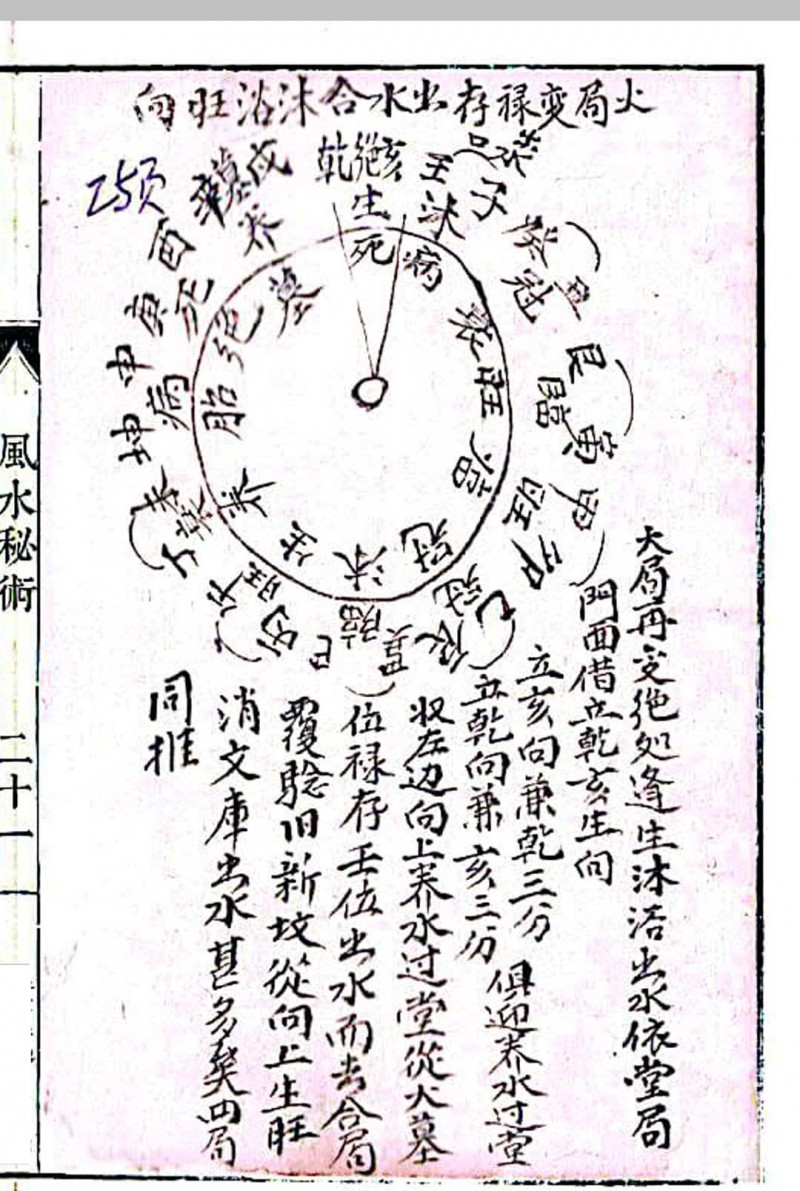 火局变禄存出水合沐浴旺向
乾绝亥
生
死
壬
沐
子
病
癸
冠
衰
旺
艮
臨
寅
甲
旺
卯
浴
冠
乙
冠
辰
沐
臨
巳
生
旺
丙
午
养
衰
丁
未
胎
病
坤
申
绝
死
庚
酉
墓
墓
戌
养
153页
火局再变绝処逢生沐浴出水依堂局
門面借立乾亥生向
立亥向兼乾三分
立乾向兼亥三分
俱迎养水过堂
收左边向上养水过堂從火墓
位禄存壬位出水而去合局
覆騐旧新坟從向上生旺
消文庫出水甚多矣四局
同推
風水秘術
二十一